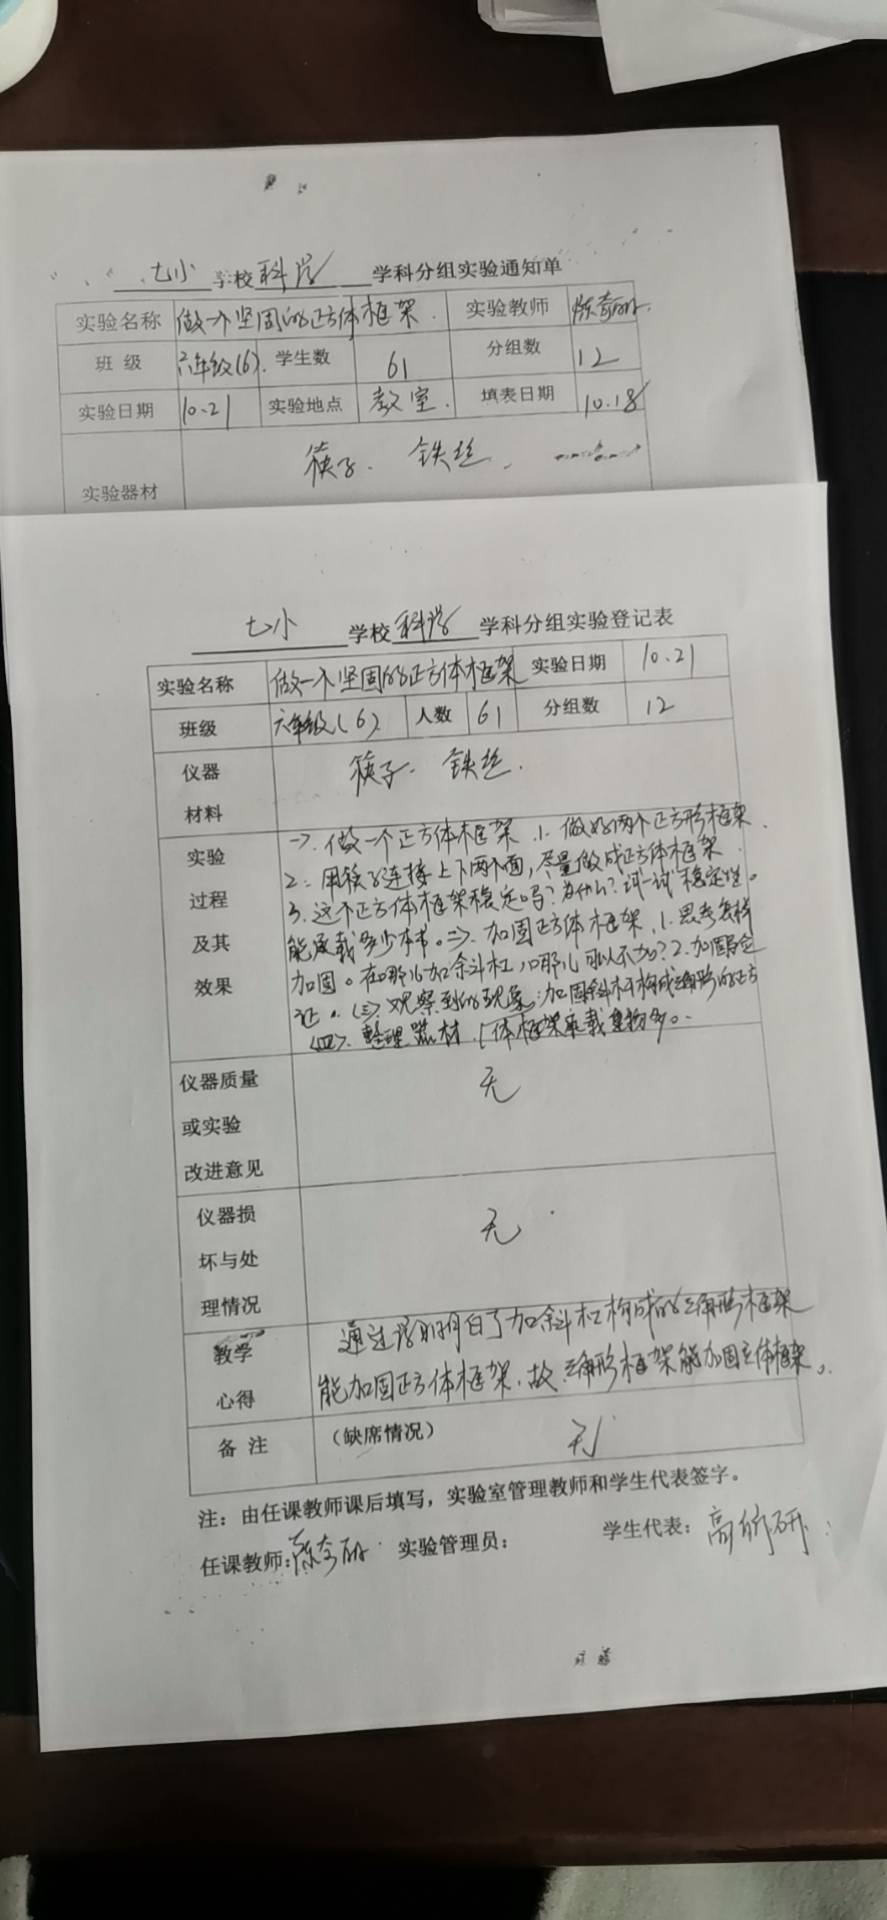 七小 学校 科学 学科分组实验通知单
实验名称 做一个坚固的正方体框架 实验教师
班 级 六年级(6). 学生数 61 分组数 12
实验日期 10.21 实验地点 教室. 填表日期 10.18
实验器材 筷子. 铁丝.
七小 学校 科学 学科分组实验登记表
实验名称 做一个坚固的正方体框架 实验日期 10.21
班级 六年级(6) 人数 61 分组数 12
仪器
材料
筷子. 铁丝.
实验
过程
及其
效果
一>. 做一个正方体框架. 1. 做好两个正方形框架.
2. 用筷子连接上下两个面,尽量做成正方体框架.
3. 这个正方体框架稳定吗?为什么?试一试稳定性。
能承载多少本书。二>. 加固正方体框架. 1. 思考怎样
加固。在哪儿加斜杠,哪儿可以不加?2. 加固
<三> 观察到的现象:加固斜杆构成三角形的正方
<四>. 整理器材. 体框架承载重物多。
仪器质量
或实验
改进意见
无
仪器损
坏与处
理情况
无
教学
心得
通过 明白了加斜杠构成的三角形框架
能加固正方体框架. 故三角形框架能加固立体框架。
备 注 (缺席情况) 无
注:由任课教师课后填写,实验室管理教师和学生代表签字。
任课教师: 实验管理员: 学生代表: